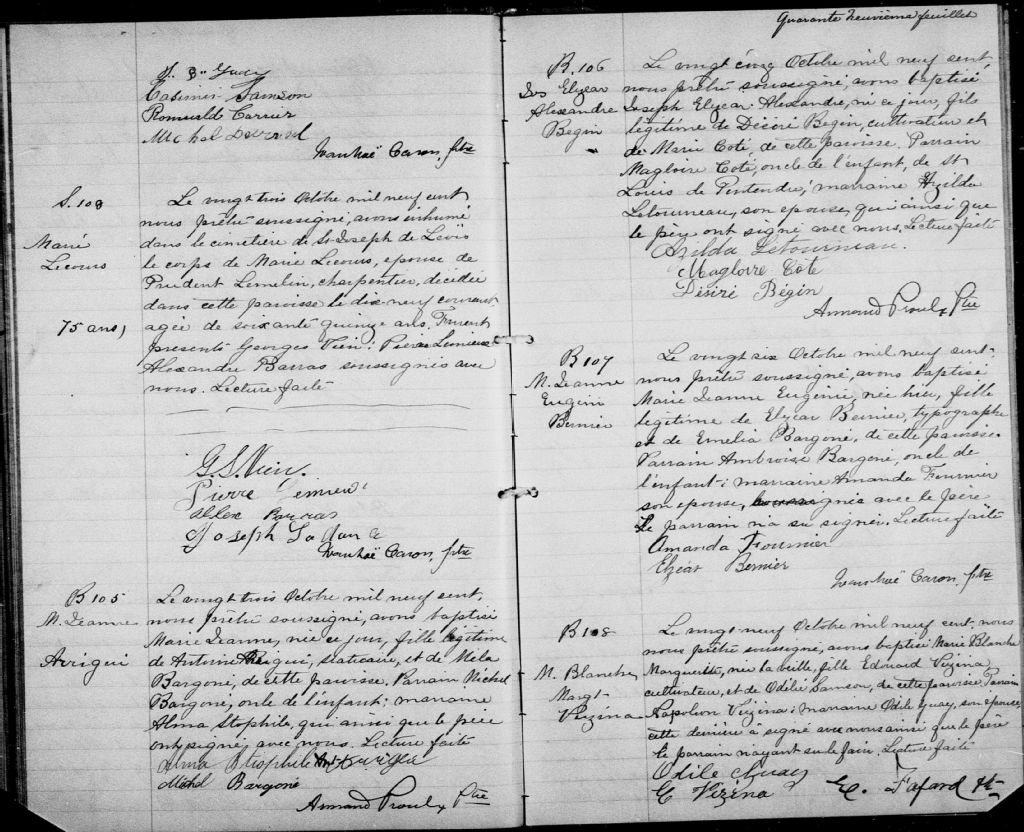 Casimir Samson
Romuald Carrier
Michel
Ivanhoë Caron, ptre
S. 108
Marie
Lecours
75 ans,
Le vingt trois Octobre mil neuf cent
nous prêtre soussigné, avons inhumé
dans le cimetière de St Joseph de Levis
le corps de Marie Lecours, epouse de
Prudent Lemelin, charpentier, décédée
dans cette paroisse le dix-neuf courant
agée de soixante quinze ans. Furent
presents Georges Vien; Pierre Lemieux
Alexandre Barras soussignés avec
nous. Lecture faite
G. S. Vien.
Pierre Lemieux
Alex Barras
Joseph
Ivanhoë Caron, ptre
B 105
M. Jeanne
Arrigui
Le vingt trois Octobre mil neuf cent,
nous prêtre soussigné, avons baptisé
Marie Jeanne, née ce jour, fille légitime
de Antoine Arrigui, statuaire, et de Mela
Bargoné, de cette paroisse. Parrain Michel
Bargoné, oncle de l'enfant; marraine
Alma Stophile, qui ainsi que le père
ont signé avec nous. Lecture faite
Alma Stophile
Michel Bargone
Armand Proulx Ptre
Quarante neuvième feuillet
B. 106
Jos Elzear
Alexandre
Begin
Le vingt cinq Octobre mil neuf cent,
nous prêtre soussigné, avons baptisé
Joseph Elzear Alexandre, né ce jour, fils
légitime de Désiré Begin, cultivateur et
de Marie Coté, de cette paroisse. Parrain
Magloire Coté, oncle de l'enfant, de St
Louis de Pintendre, marraine Azilda
Letourneau, son epouse, qui ainsi que
le père ont signé avec nous. Lecture faite
Azilda Letourneau.
Magloire Cote
Désiré Bégin
Armand Proulx Ptre
B 107
M. Jeanne
Eugeni
Bernier
Le vingt six Octobre mil neuf cent-
nous prêtre soussigné, avons baptisé
Marie Jeanne Eugénie, née hier, fille
légitime de Elzear Bernier, typographe
et de Emelia Bargoné, de cette paroisse.
Parrain Ambroise Bargoné, oncle de
l'enfant; marraine Amanda Fournier
son epouse, soussignée avec le père
Le parrain n'a su signer. Lecture faite
Amanda Fournier
Elzéar Bernier
Ivanhoë Caron, ptre
B 108
M. Blanche
Margt-
Vézina
Le vingt-neuf Octobre mil neuf cent, nous
nous prêtre soussigné, avons baptisé Marie Blanche
Marguerite, née la veille, fille Edouard Vézina
cultivateur, et de Odile Samson, de cette paroisse. Parrain
Napoléon Vézina; marraine Odile Guay, son épouse,
cette dernière a signé avec nous ainsi que le père
le parrain n'ayant su le faire. Lecture faite
Odile Guay
E Vézina
E. Fafard Ptr